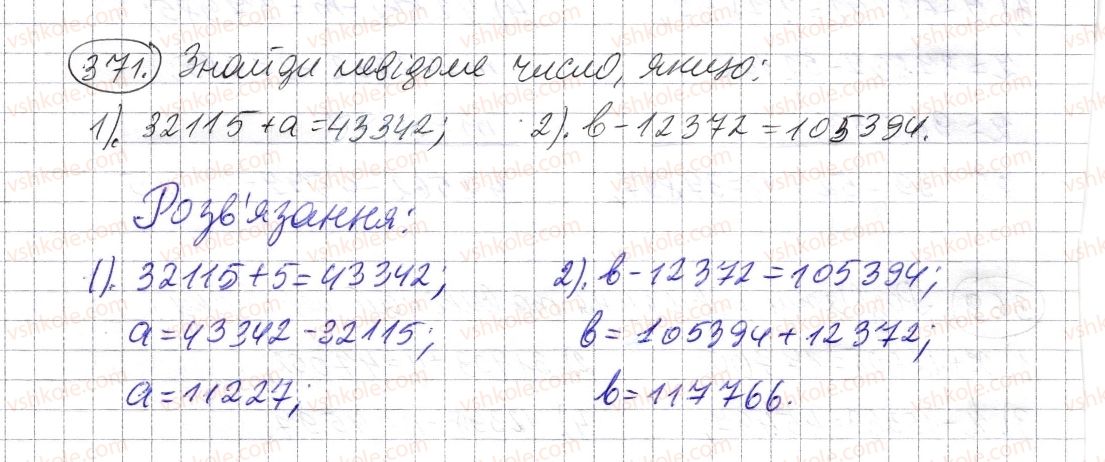 371. Знайди невідоме число, якщо:
1). 32115 + a = 43342; 2). b - 12372 = 105394.
Розв'язання:
1). 32115 + 5 = 43342; 2). b - 12372 = 105394;
a = 43342 - 32115; b = 105394 + 12372;
a = 11227; b = 117766.